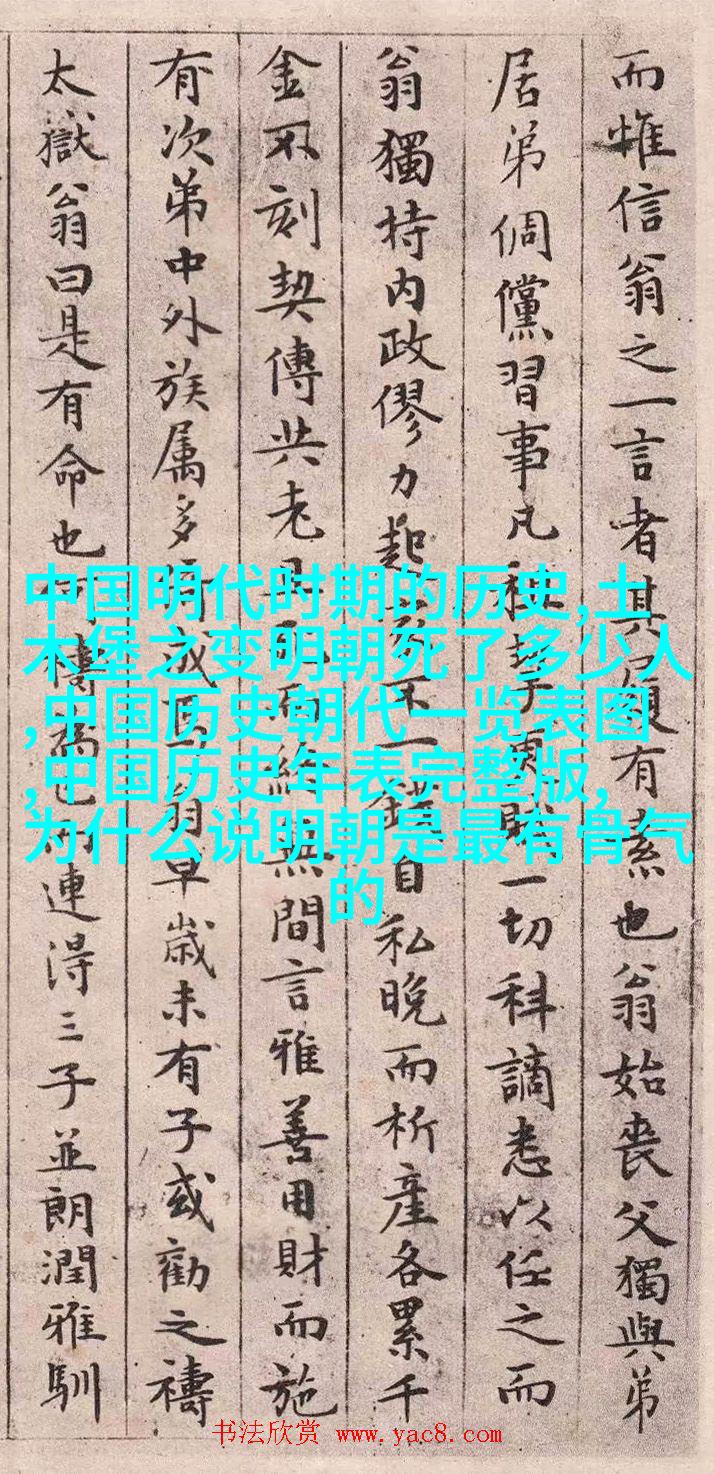 而惟信翁之一言者其
有素也翁始喪父獨與弟
居弟倜儻習事凡
一切科謫悉以任之而
翁獨持内政僇力起
自私晚而析產各累千
金不刻契傳共老
無間言雅善用財而施
有次第中外族属多
翁早歳未有子或勸之禱
太獄翁曰是有命也
連得三子並朗潤雅馴
中国明代时期的历史,土
木堡之变明朝死了多少人
,中国历史朝代一览表图
,中国历史年表完整版,
为什么说明朝是最有骨气
的
书法欣赏 www.yac8.com